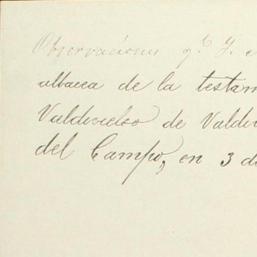 Observaciones q.e J.
albacea de la testam
Valdivielso de Valdi
del Campo, en 3 d